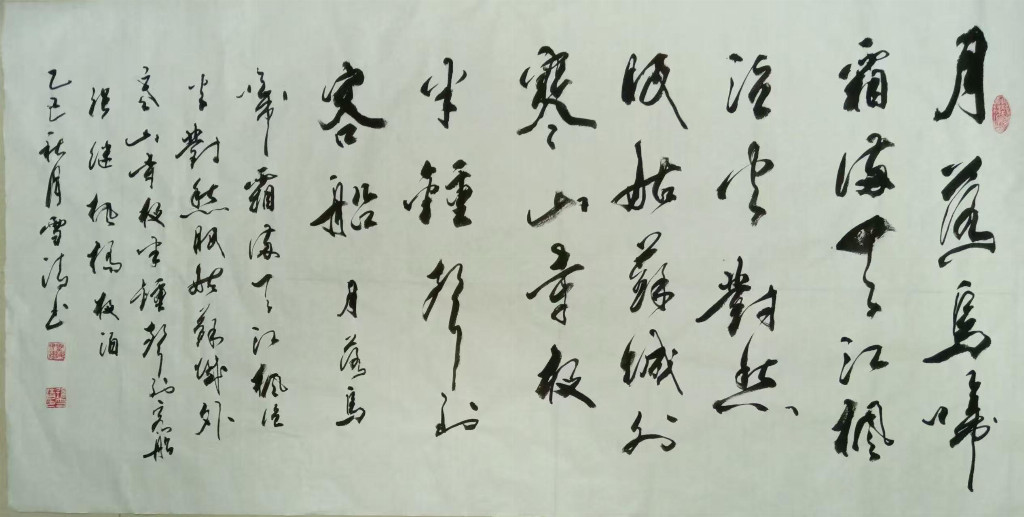 月落烏啼
霜滿天江楓
漁火對愁
眠姑蘇城外
寒山寺夜
半鐘聲到
客船 月落烏
啼霜滿天江楓漁
火對愁眠姑蘇城外
寒山寺夜半鐘聲到客船
張繼楓橋夜泊
乙巳秋月雪清書